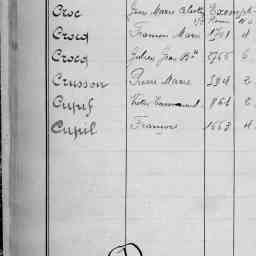 Croc Jean Marie Exempt
Crocq François Marie 1701 4
Crocq Julien Jean Bte 1766 6
Crusson Pierre Marie 594 2
Cupif Victor Emmanuel 961 2
Cupil François 1663 4